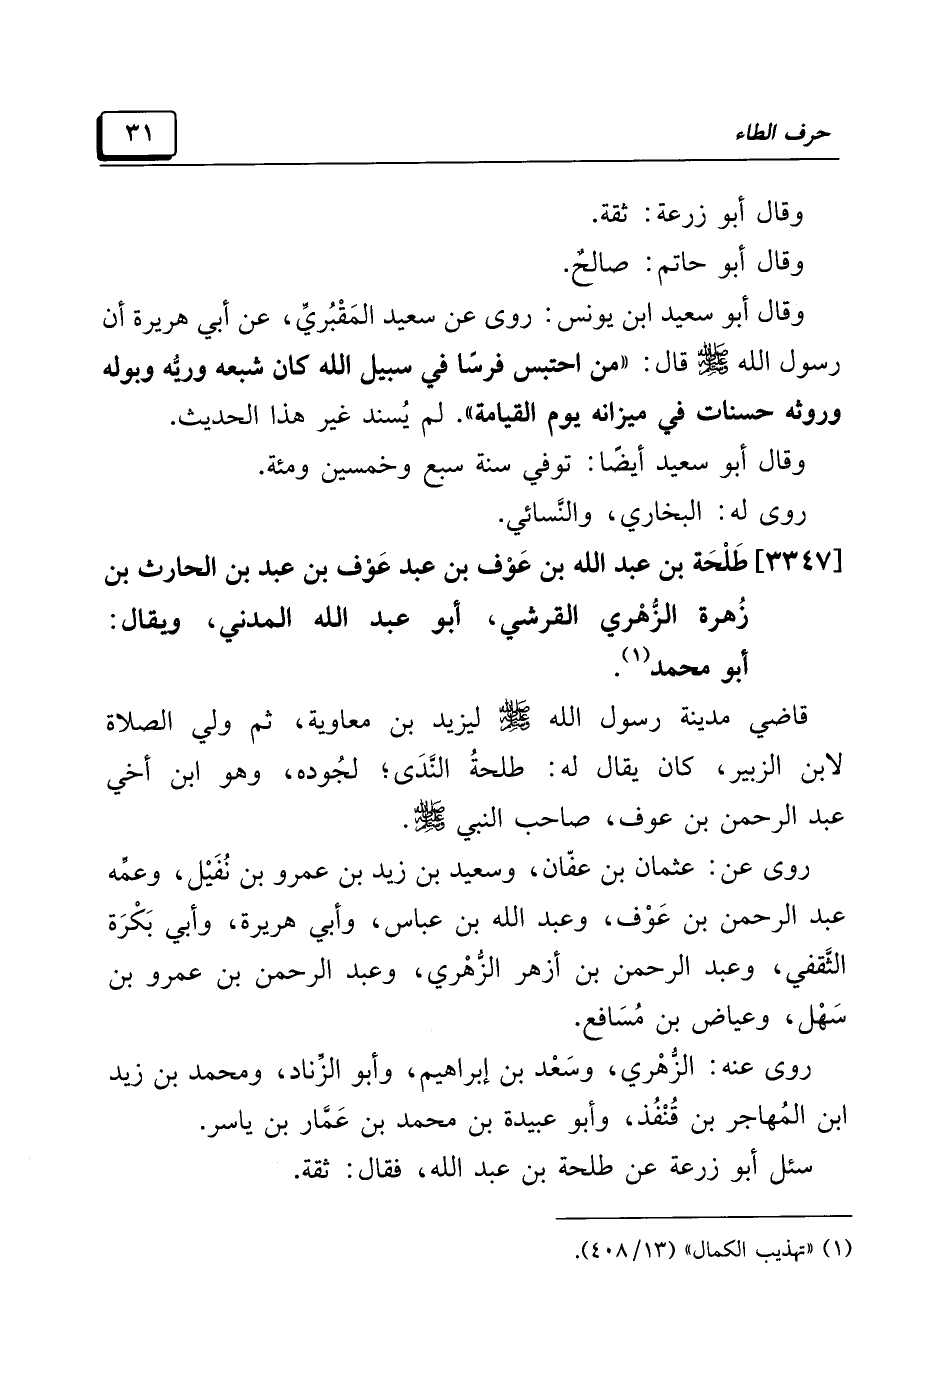 حرف الطاء
٣١
وقال أبو زرعة: ثقة.
وقال أبو حاتم: صالحٌ.
وقال أبو سعيد ابن يونس: روى عن سعيد المَقْبُريِّ، عن أبي هريرة أن
رسول الله ﷺ قال: «من احتبس فرسًا في سبيل الله كان شبعه وريُّه وبوله
وروثه حسنات في ميزانه يوم القيامة». لم يُسند غير هذا الحديث.
وقال أبو سعيد أيضًا: توفي سنة سبع وخمسين ومئة.
روى له: البخاري، والنَّسائي.
[٣٣٤٧] طَلْحَة بن عبد الله بن عَوْف بن عبد عَوْف بن عبد بن الحارث بن
زُهرة الزُّهْري القرشي، أبو عبد الله المدني، ويقال:
أبو محمد(١).
قاضي مدينة رسول الله ﷺ ليزيد بن معاوية، ثم ولي الصلاة
لابن الزبير، كان يقال له: طلحةُ النَّدَى؛ لجُوده، وهو ابن أخي
عبد الرحمن بن عوف، صاحب النبي ﷺ.
روى عن: عثمان بن عفّان، وسعيد بن زيد بن عمرو بن نُفَيْل، وعمِّه
عبد الرحمن بن عَوْف، وعبد الله بن عباس، وأبي هريرة، وأبي بَكْرَة
الثَّقفي، وعبد الرحمن بن أزهر الزُّهْري، وعبد الرحمن بن عمرو بن
سَهْل، وعياض بن مُسَافع.
روى عنه: الزُّهْري، وسَعْد بن إبراهيم، وأبو الزِّناد، ومحمد بن زيد
ابن المُهاجر بن قُنْفُذ، وأبو عبيدة بن محمد بن عَمَّار بن ياسر.
سئل أبو زرعة عن طلحة بن عبد الله، فقال: ثقة.
(١) «تهذيب الكمال» (١٣/ ٤٠٨).